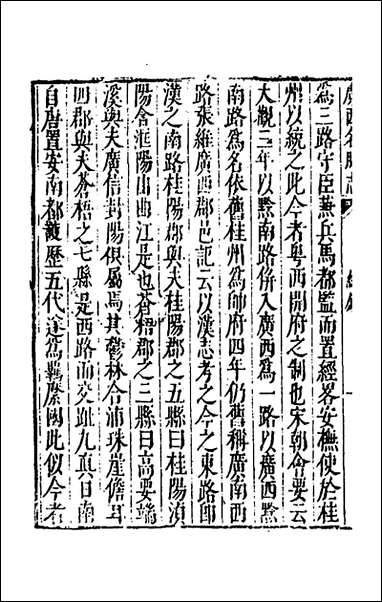 廣西名勝志
為三路守臣兼兵馬都監而置經畧安撫使於桂
州以統之此今者粵西開府之制也宋朝會要云
大觀三年以黔南路併入廣西為一路以廣西黔
南路為名依舊桂州為帥府四年仍舊稱廣南西
路張維廣西郡邑記云以漢志考之今之東路卽
漢之南路桂陽郡與夫桂陽郡之五縣曰桂陽湞
陽含洭陽山曲江是也蒼梧郡之三縣曰高要端
溪與夫廣信封陽俱屬焉其鬱林合浦珠崖儋耳
四郡與夫蒼梧之七縣是西路而交趾九真日南
自唐置安南都護歷五代遂為羈縻國此似今者